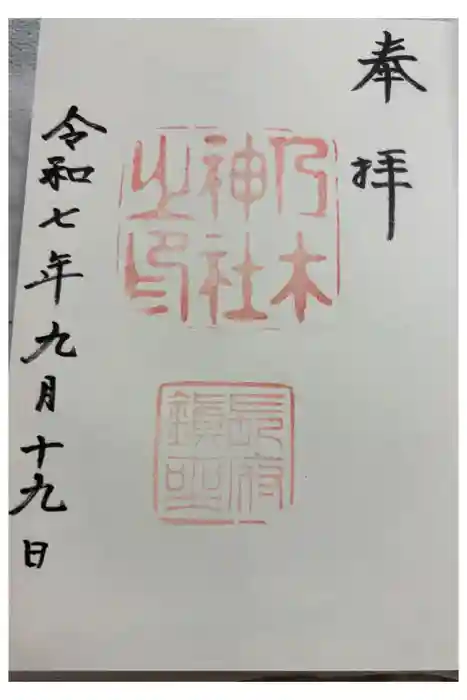 奉拝
乃木
神社
之印
長府
鎭坐
令和七年九月十九日